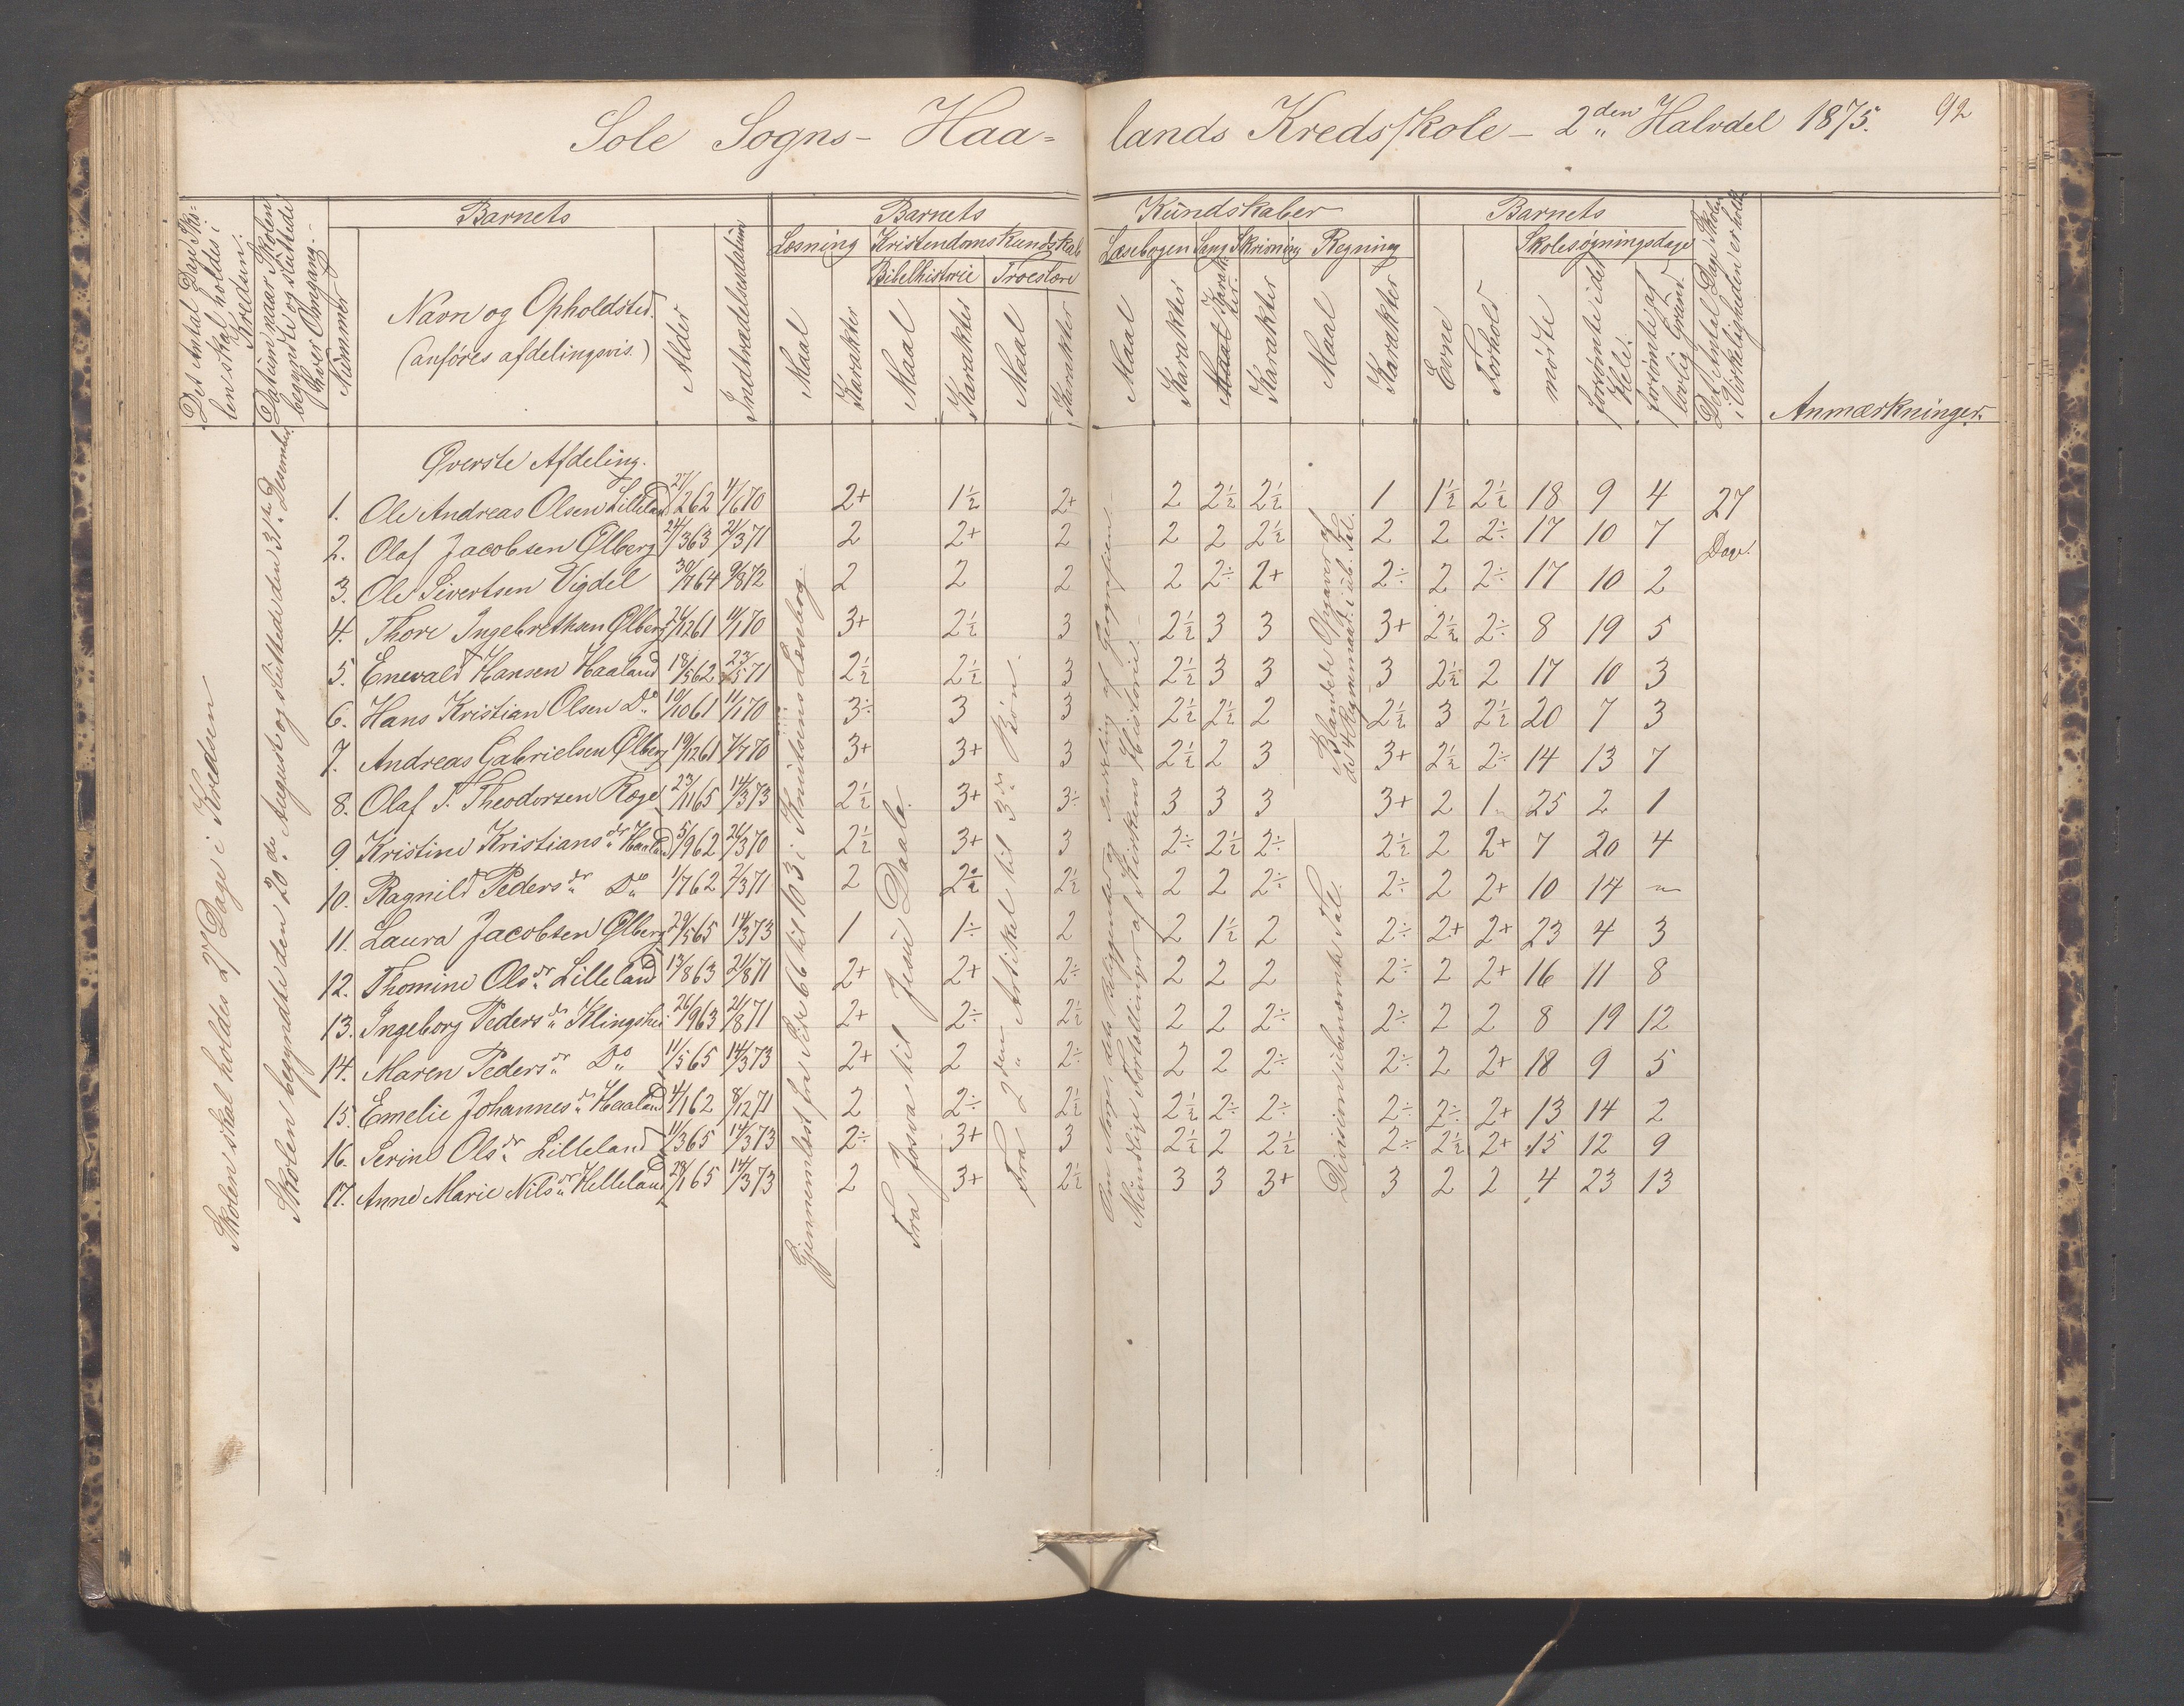 Sole Sogns - Haa= lands Kredsskole - 2den Halvdel 1875. 92
Det Antal Dage Sko=
len skal holdes i
Kredsen.
Datum naar Skolen
begyndte og sluttede
hver Omgang. -
Nummer
Barnets
Navn og Opholdsted.
(anføres afdelingsvis.)
Alder
Indtrædelsesdatum
Barnets Kundskaber
Læsning Kristendomskundskab
Maal Karakter
Bibelhistorie Troeslære
Maal Karakter Maal Karakter
Læsebogen Sang Skrivning Regning
Maal Karakter Maal Karakter Karakter Maal Karakter
Barnets
Evne Forhold
Skolesøgningsdage
mødte forsømte i det Hele. forsømte af lovlig Grund.
Det Antal Dage Skolen
i Virkeligheden er holdt
Anmærkninger.
Skolen skal holdes 27 Dage i Kredsen
Skolen begyndte den 20de August og sluttede den 31te December.
Gjennemlæst fra Side 66 til 103 i Knudsens Læsebog.
Fra Josva til Jesu Daab.
Fra 2den Artikel til 3die Bøn.
Mundlige Fortællinger af Kirkens Historie.
Øverste Afdeling.
1. Ole Andreas Olsen Lilleland 27/2 62 4/6 70 2+ 1½ 2+ 2 2½ 2½ 1 1½ 2½ 18 9 4 27
2. Olaf Jacobsen Ølberg 24/3 63 21/3 71 2 2+ 2 2 2 2½ 2 2 2÷ 17 10 7 Dage.
3. Ole Sivertsen Vigdel 30/7 64 9/8 72 2 2 2 2 2÷ 2+ 2÷ 2 2÷ 17 10 2
4. Thore Ingebrethsen Ølberg 21/12 61 11/1 70 3+ 2½ 3 2½ 3 3 3+ 2½ 2÷ 8 19 5
5. Enevald Hansen Haaland 18/5 62 23/5 71 2½ 2½ 3 2½ 3 3 3 2½ 2 17 10 3
6. Hans Kristian Olsen Do 10/10 61 11/1 70 3÷ 3 3 2½ 2½ 2 2½ 3 2½ 20 7 3
7. Andreas Gabrielsen Ølberg 19/12 61 7/7 70 3+ 3+ 3 2½ 2 3 3+ 2½ 2÷ 14 13 7
8. Olaf T. Theodorsen Røge 23/11 65 14/3 73 2½ 3+ 3÷ 3 3 3 3+ 2 1 25 2 1
9. Kristine Kristiansdr Haaland 5/9 62 21/3 70 2½ 3+ 3 2÷ 2½ 2÷ 2½ 2 2+ 7 20 4
10. Ragnild Pedersdr Do 1/7 62 2/3 71 2 2½ 2½ 2 2 2÷ 2÷ 2 2+ 10 14 "
11. Laura Jacobsen Ølberg 29/5 65 14/3 73 1 1÷ 2 2 1½ 2 2÷ 2+ 2+ 23 4 3
12. Thomine Olsdr Lilleland 13/8 63 21/8 71 2+ 2+ 2÷ 2 2 2 2÷ 2 2+ 16 11 8
13. Ingeborg Pedersdr Klingshei 26/9 63 21/8 71 2+ 2÷ 2½ 2 2 2÷ 2÷ 2 2 8 19 12
14. Maren Pedersdr Do 11/5 65 14/3 73 2+ 2 2÷ 2 2 2÷ 2÷ 2 2+ 18 9 5
15. Emelie Johannesdr Haaland 4/1 62 8/12 71 2 2÷ 2½ 2½ 2÷ 2÷ 2÷ 2÷ 2+ 13 14 2
16. Serine Olsdr Lilleland 11/3 65 14/3 73 2÷ 3+ 3 2½ 2 2½ 2÷ 2½ 2+ 15 12 9
17. Anne Marie Nilsdr Helleland 28/1 65 14/3 73 2 3+ 2½ 3 3 3+ 3 2 2 4 23 13